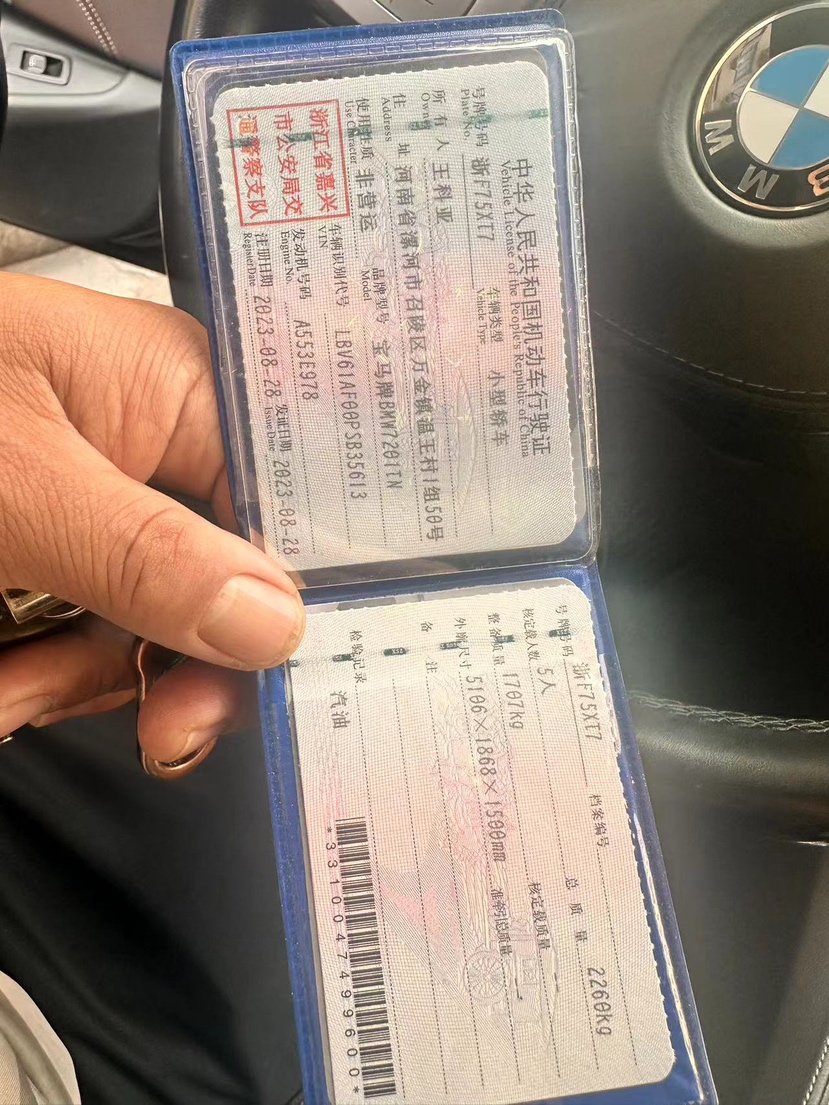 中华人民共和国机动车行驶证
Vehicle License of the People's Republic of China
号牌号码 浙F75XT7 车辆类型 小型轿车
Plate No. Vehicle Type
所有人 王科亚
Owner
住址 河南省漯河市召陵区万金镇温王村1组50号
Address
使用性质 非营运 品牌型号 宝马牌BMW7201TN
Use Character Model
浙江省嘉兴
市公安局交
通警察支队
车辆识别代号 LBV61AF00PSB35613
VIN
发动机号码 A553E978
Engine No.
注册日期 2023-08-28 发证日期 2023-08-28
Register Date Issue Date
号牌号码 浙F75XT7 档案编号
核定载人数 5人 总质量 2260kg
整备质量 1707kg 核定载质量
外廓尺寸 5106×1868×1500mm 准牵引总质量
备注
检验记录 汽油
*3310047499600*
BMW